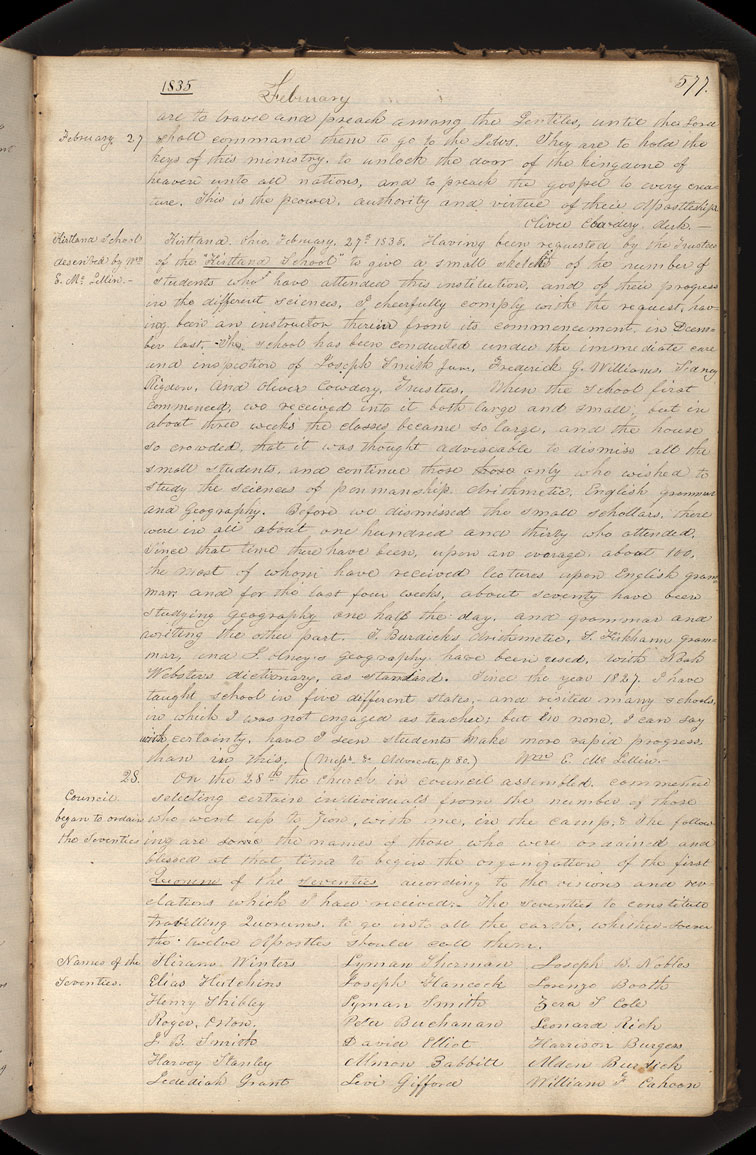 1835
February
577.
are to travel and preach among the Gentiles, until the Lord
February 27 shall command them to go to the Jews. They are to hold the
keys of this ministry, to unlock the door of the kingdom of
heaven unto all nations, and to preach the gospel to every crea-
ture. This is the power, authority and virtue of their Apostleship
Oliver Cowdery, clerk.—
Kirtland School Kirtland, Ohio, February, 27th 1835. Having been requested by the Trustees
described by Wm of the "Kirtland School" to give a small sketch of the number of
E. Mc Lellin.- students who have attended this institution, and of their progress
in the different sciences, I cheerfully comply with the request, hav-
ing been an instructor therein from its commencement in Decem-
ber last. The school has been conducted under the immediate care
and inspection of Joseph Smith Jun., Frederick G. Williams, Sidney
Rigdon, and Oliver Cowdery, Trustees. When the school first
commenced, we received into it both large and small, but in
about three weeks the classes became so large, and the house
so crowded, that it was thought adviseable to dismiss all the
small students, and continue those only who wished to
study the sciences of penmanship, Arithmetic, English grammar
and geography. Before we dismissed the small schollars, there
were in all about one hundred and thirty who attended.
Since that time there have been, upon an average, about 100,
the most of whom have received lectures upon English gram-
mar: and for the last four weeks, about seventy have been
studying geography one half the day, and grammar and
writing the other part. T. Burdick's Arithmetic, S. Kirkham gram-
mar, and J. Olney's geography have been used, with Noah
Webster's dictionary, as standard. Since the year 1827, I have
taught school in five different states,- and visited many schools,
in which I was not engaged as teacher; but in none, I can say
with certainty, have I seen students make more rapid progress,
than in this. (Messr & Advocate, p 80.) Wm E. Mc Lellin.-
28. On the 28th the church in council assembled, commenced
Council selecting certain individuals from the number of those
began to ordain who went up to Zion, with me, in the camp; & The follow
the Seventies ing are some the names of those who were ordained and
blessed at that time to begin the organization of the first
Quorum of the Seventies according to the visions and rev-
elations which I have received.- The Seventies to constitute
travelling Quorums, to go into all the earth, whithersoever
the twelve Apostles should call them.
Names of the Hiram Winters Lyman Sherman Joseph B. Nobles
Seventies. Elias Hutchins Joseph Hancock Lorenzo Booth
Henry Shibley Lyman Smith Zera S Cole
Roger Orton, Peter Buchanan Leonard Rich
J. B. Smith David Elliot Harrison Burges
Harvey Stanley Almon Babbitt Alden Burdick
Jedediah Grant Levi Gifford William F. Cahoon